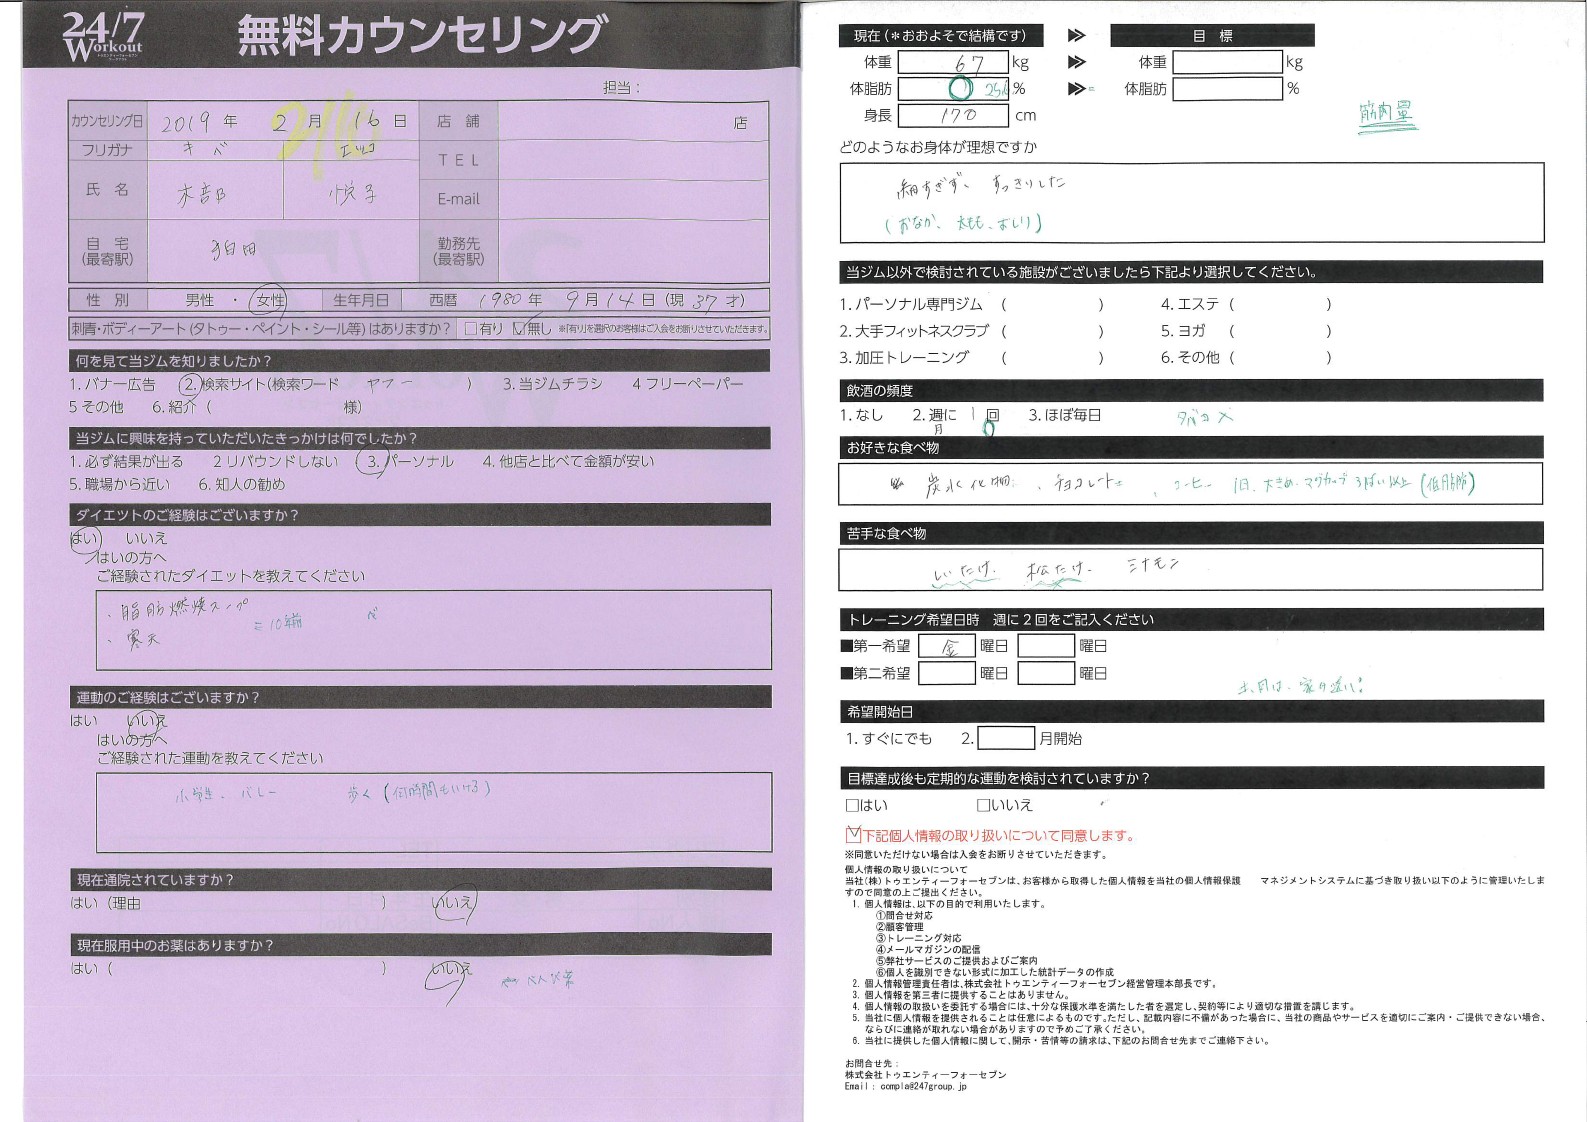 24/7
Workout
トゥエンティーフォーセブン
ワークアウト
無料カウンセリング
担当：
カウンセリング日 2019 年 2 月 16 日 店舗 店
2/16
フリガナ キベ エツコ TEL
氏名 木部 悦子 E-mail
自宅(最寄駅) 羽田 勤務先(最寄駅)
性別 男性 ・ 女性 生年月日 西暦 1980 年 9 月 14 日 (現 37 才)
刺青・ボディーアート(タトゥー・ペイント・シール等)はありますか？ □有り ☑無し ※「有り」を選択のお客様はご入会をお断りさせていただきます。
何を見て当ジムを知りましたか？
1. バナー広告 2. 検索サイト(検索ワード ヤフー ) 3. 当ジムチラシ 4 フリーペーパー
5 その他 6. 紹介 ( 様)
当ジムに興味を持っていただいたきっかけは何でしたか？
1. 必ず結果が出る 2 リバウンドしない 3. パーソナル 4. 他店と比べて金額が安い
5. 職場から近い 6. 知人の勧め
ダイエットのご経験はございますか？
はい いいえ
はいの方へ
ご経験されたダイエットを教えてください
・脂肪燃焼スープ
・寒天
10年前
運動のご経験はございますか？
はい いいえ
はいの方へ
ご経験された運動を教えてください
小学生、バレー 歩く (何時間もいける)
現在通院されていますか？
はい (理由 ) いいえ
現在服用中のお薬はありますか？
はい ( ) いいえ
べんぴ薬
現在 (＊おおよそで結構です) 目標
体重 67 kg 体重 kg
体脂肪 25.6 % 体脂肪 %
身長 170 cm
筋肉量
どのようなお身体が理想ですか
細すぎず、すっきりした
(おなか、太もも、おしり)
当ジム以外で検討されている施設がございましたら下記より選択してください。
1. パーソナル専門ジム ( ) 4. エステ ( )
2. 大手フィットネスクラブ ( ) 5. ヨガ ( )
3. 加圧トレーニング ( ) 6. その他 ( )
飲酒の頻度
1. なし 2. 週に 1 回 3. ほぼ毎日 タバコ ×
月
お好きな食べ物
炭水化物、チョコレート、コーヒー 1日、大きめ、マグカップ 3ばい以上 (低脂肪)
苦手な食べ物
しいたけ、松たけ、シナモン
トレーニング希望日時 週に 2 回をご記入ください
■第一希望 金 曜日 曜日
■第二希望 曜日 曜日
土、日は、家の近い!
希望開始日
1. すぐにでも 2. 月開始
目標達成後も定期的な運動を検討されていますか？
□はい □いいえ
☑下記個人情報の取り扱いについて同意します。
※同意いただけない場合は入会をお断りさせていただきます。
個人情報の取り扱いについて
当社(株)トゥエンティーフォーセブンは、お客様から取得した個人情報を当社の個人情報保護 マネジメントシステムに基づき取り扱い以下のように管理いたしま
すので同意の上ご提出ください。
1. 個人情報は、以下の目的で利用いたします。
①問合せ対応
②顧客管理
③トレーニング対応
④メールマガジンの配信
⑤弊社サービスのご提供およびご案内
⑥個人を識別できない形式に加工した統計データの作成
2. 個人情報管理責任者は、株式会社トゥエンティーフォーセブン経営管理本部長です。
3. 個人情報を第三者に提供することはありません。
4. 個人情報の取扱いを委託する場合には、十分な保護水準を満たした者を選定し、契約等により適切な措置を講じます。
5. 当社に個人情報を提供されることは任意によるものです。ただし、記載内容に不備があった場合に、当社の商品やサービスを適切にご案内・ご提供できない場合、
ならびに連絡が取れない場合がありますので予めご了承ください。
6. 当社に提供した個人情報に関して、開示・苦情等の請求は、下記のお問合せ先までご連絡下さい。
お問合せ先：
株式会社トゥエンティーフォーセブン
Email : compla@247group.jp